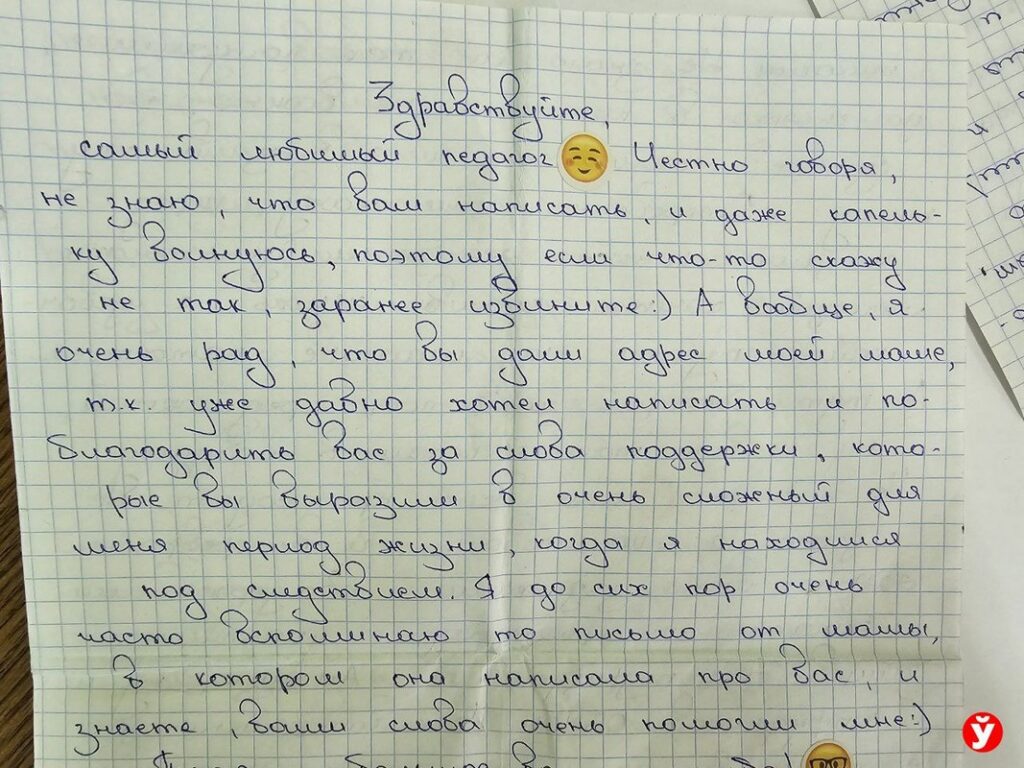 Здравствуйте,
самый любимый педагог Честно говоря,
не знаю, что вам написать, и даже капель-
ку волнуюсь, поэтому если что-то скажу
не так, заранее извините:) А вообще, я
очень рад, что вы дали адрес моей маме,
т.к. уже давно хотел написать и по-
благодарить вас за слова поддержки, кото-
рые вы выразили в очень сложный для
меня период жизни, когда я находился
под следствием. Я до сих пор очень
часто вспоминаю то письмо от мамы,
в котором она написала про вас, и
знаете, ваши слова очень помогли мне:)
Ў